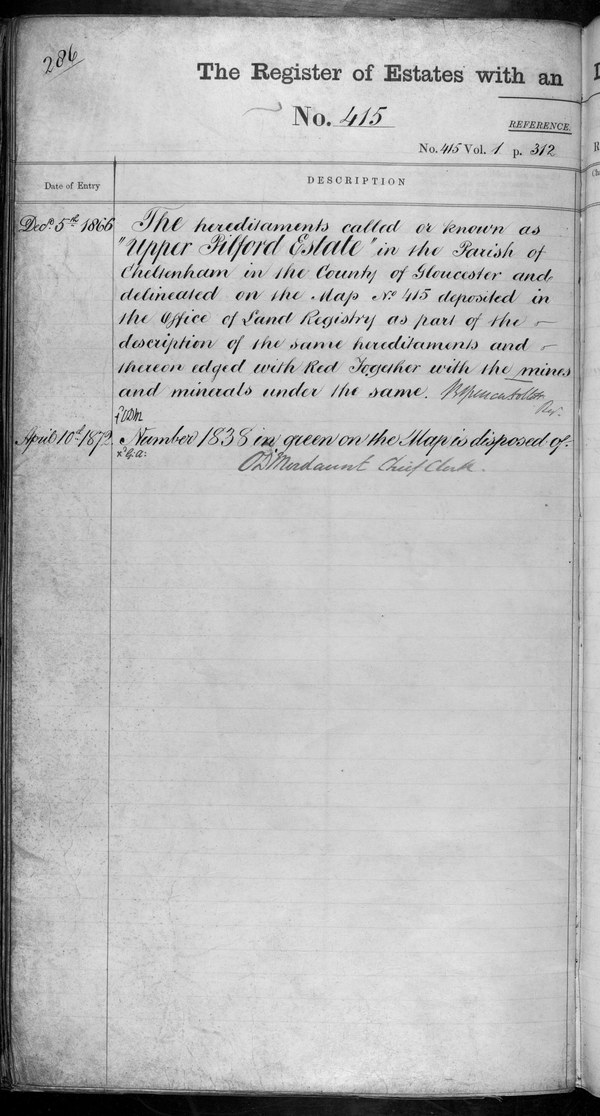 286
The Register of Estates with an
No. 415
REFERENCE.
No. 415 Vol. 1 p. 312
Date of Entry
DESCRIPTION
Decr. 5th 1866 The hereditaments called or known as
"Upper Pilford Estate" in the Parish of
Cheltenham in the County of Gloucester and
delineated on the Map No 415 deposited in
the Office of Land Registry as part of the
description of the same hereditaments and
thereon edged with Red Together with the mines
and minerals under the same.
Regr.
April 10th 1872. Number 1838 in green on the Map is disposed of.
Mordaunt Chief Clerk.